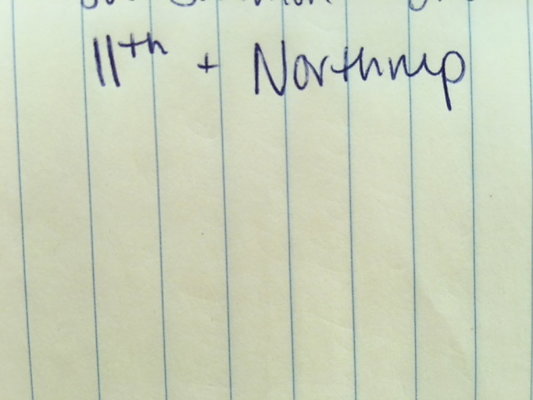 11th + Northrup